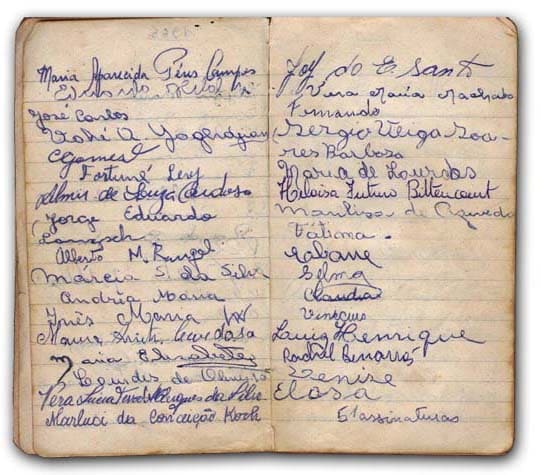 Maria Aparecida Péres Campos
José Carlos
Vahé A Yaghdjian
Gomes
Fortuné Levy
Almir de Souza Cardoso
Jorge Eduardo
Alberto M. Rangel
Márcia S. da Silva
Andréa Maria
Inês Maria
Maria Elisabete
Lourdes de Oliveira
Vera Lucia da Silva
Marluci da Conceição Koch
Joy do E Santo
Vera Maria Machado
Fernando
Sergio Veiga Soa-
res Barbosa
Maria de Lourdes
Heloisa Futuro Bittencourt
de Azevedo
Fátima
Selma
Claudia
Vinicius
Luiz Henrique
Rachel Benarrós
Denise
Elosa
51 assinaturas